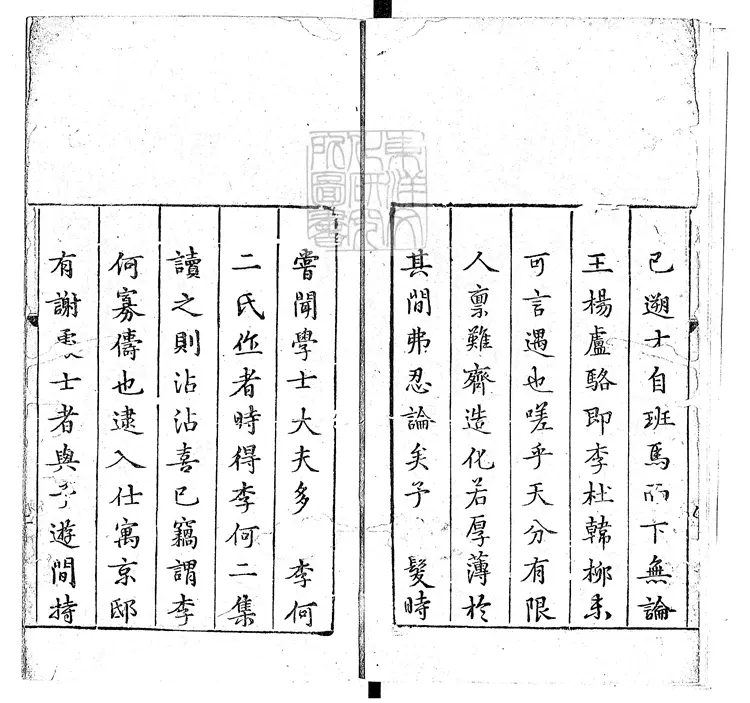 已遡士自班馬而下無論
王楊盧駱即李杜韓柳未
可言遇也嗟乎天分有限
人禀難齊造化若厚薄於
其間弗忍論矣予 髮時
嘗聞學士大夫多 李何
二氏作者時得李何二集
讀之則沾沾喜已竊謂李
何寡儔也逮入仕寓京邸
有謝 士者與予遊間持
東洋文
化研究
所圖書